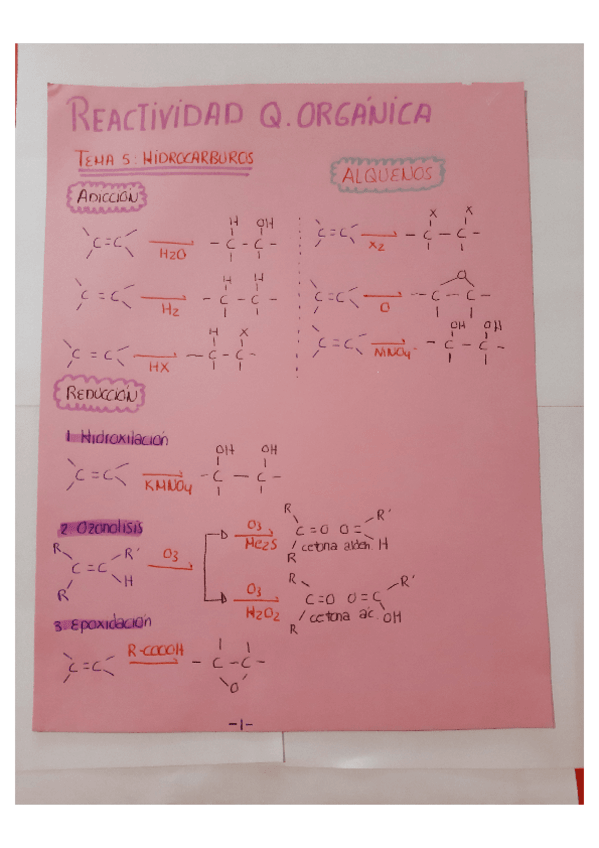 REACTIVIDAD Q. ORGÁNICA
TEMA 5: HIDROCARBUROS
ALQUENOS
ADICCIÓN
C=C H2O H OH -C-C-
C=C H2 H H -C-C-
C=C HX H X -C-C-
C=C X2 X X -C-C-
C=C O O -C-C-
C=C MNO4 OH OH -C-C-
REDUCCIÓN
1 Hidroxilación
C=C KMNO4 OH OH -C-C-
2 Ozonolisis
R R' C=C R H O3
O3 Me2S R C=O O=C R' H R
cetona aldeh
O3 H2O2 R C=O O=C R' OH R
cetona ác
3. Epoxidación
C=C R-COOOH -C-C- O
-1-